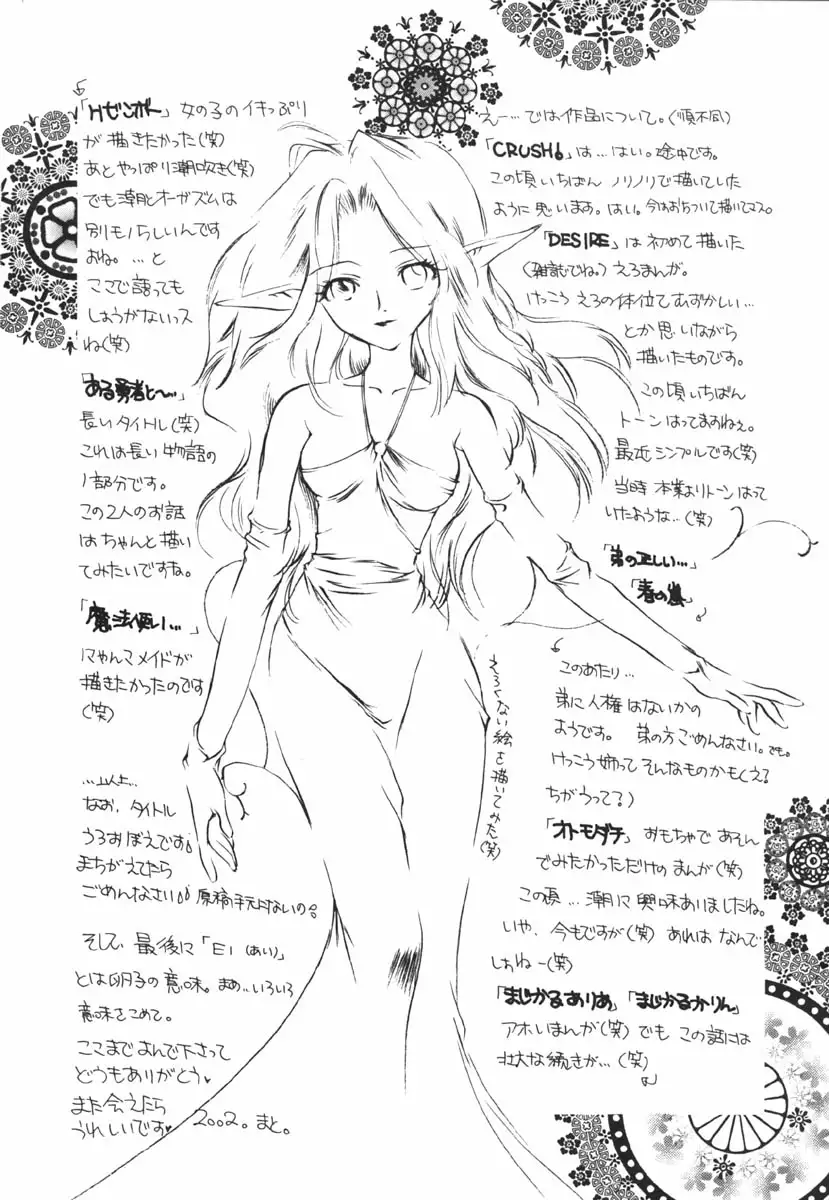 えー…では作品について。(順不同)
「CRUSH!」は…はい。途中です。
この頃いちばん ノリノリで描いていた
ように思います。はい。今はおちついて描いてマス。
「DESIRE」は初めて描いた
(雑誌でね。)えろまんが。
けっこう えろの体位てむずかしい…
とか思いながら
描いたものです。
この頃いちばん
トーンはってますねぇ。
最近シンプルです(笑)
当時 本業よりトーンはって
いたような…(笑)
「弟の正しい…」
「春の嵐」
このあたり…
弟に人権はないかの
ようです。弟の方ごめんなさい。でも。
けっこう姉ってそんなものかもよ?
ちがうって?)
「オトモダチ」おもちゃであそん
でみたかっただけのまんが(笑)
この頃…潮に興味ありましたね。
いや、今もですが(笑)あれは なんで
しょねー(笑)
「まじかるありあ」「まじかるかりん」
アホいまんが(笑)でも この話には
壮大な続きが…(笑)
「Hゼンボー」女の子のイキっぷり
が描きたかった(笑)
あとやっぱり潮吹き(笑)
でも潮とオーガズムは
別モノらしいんです
よね。…と
ココで語っても
しょうがないっス
ね(笑)
「ある勇者と〜…」
長いタイトル(笑)
これは長い物語の
1部分です。
この2人のお話
はちゃんと描い
てみたいですね。
「魔法使い…」
にゃんこメイドが
描きたかったのです
(笑)
…以上…
なお、タイトル
うろおぼえです。
まちがえてたら
ごめんなさい。原稿手元にないの。
そして 最後に「EI(あい)」
とは卵子の意味。まぁ…いろいろ
意味をこめて。
ここまでよんで下さって
どうもありがとう♥
また会えたら
うれしいです♥ 2002。まと。
えろくない絵を描いてみた(笑)